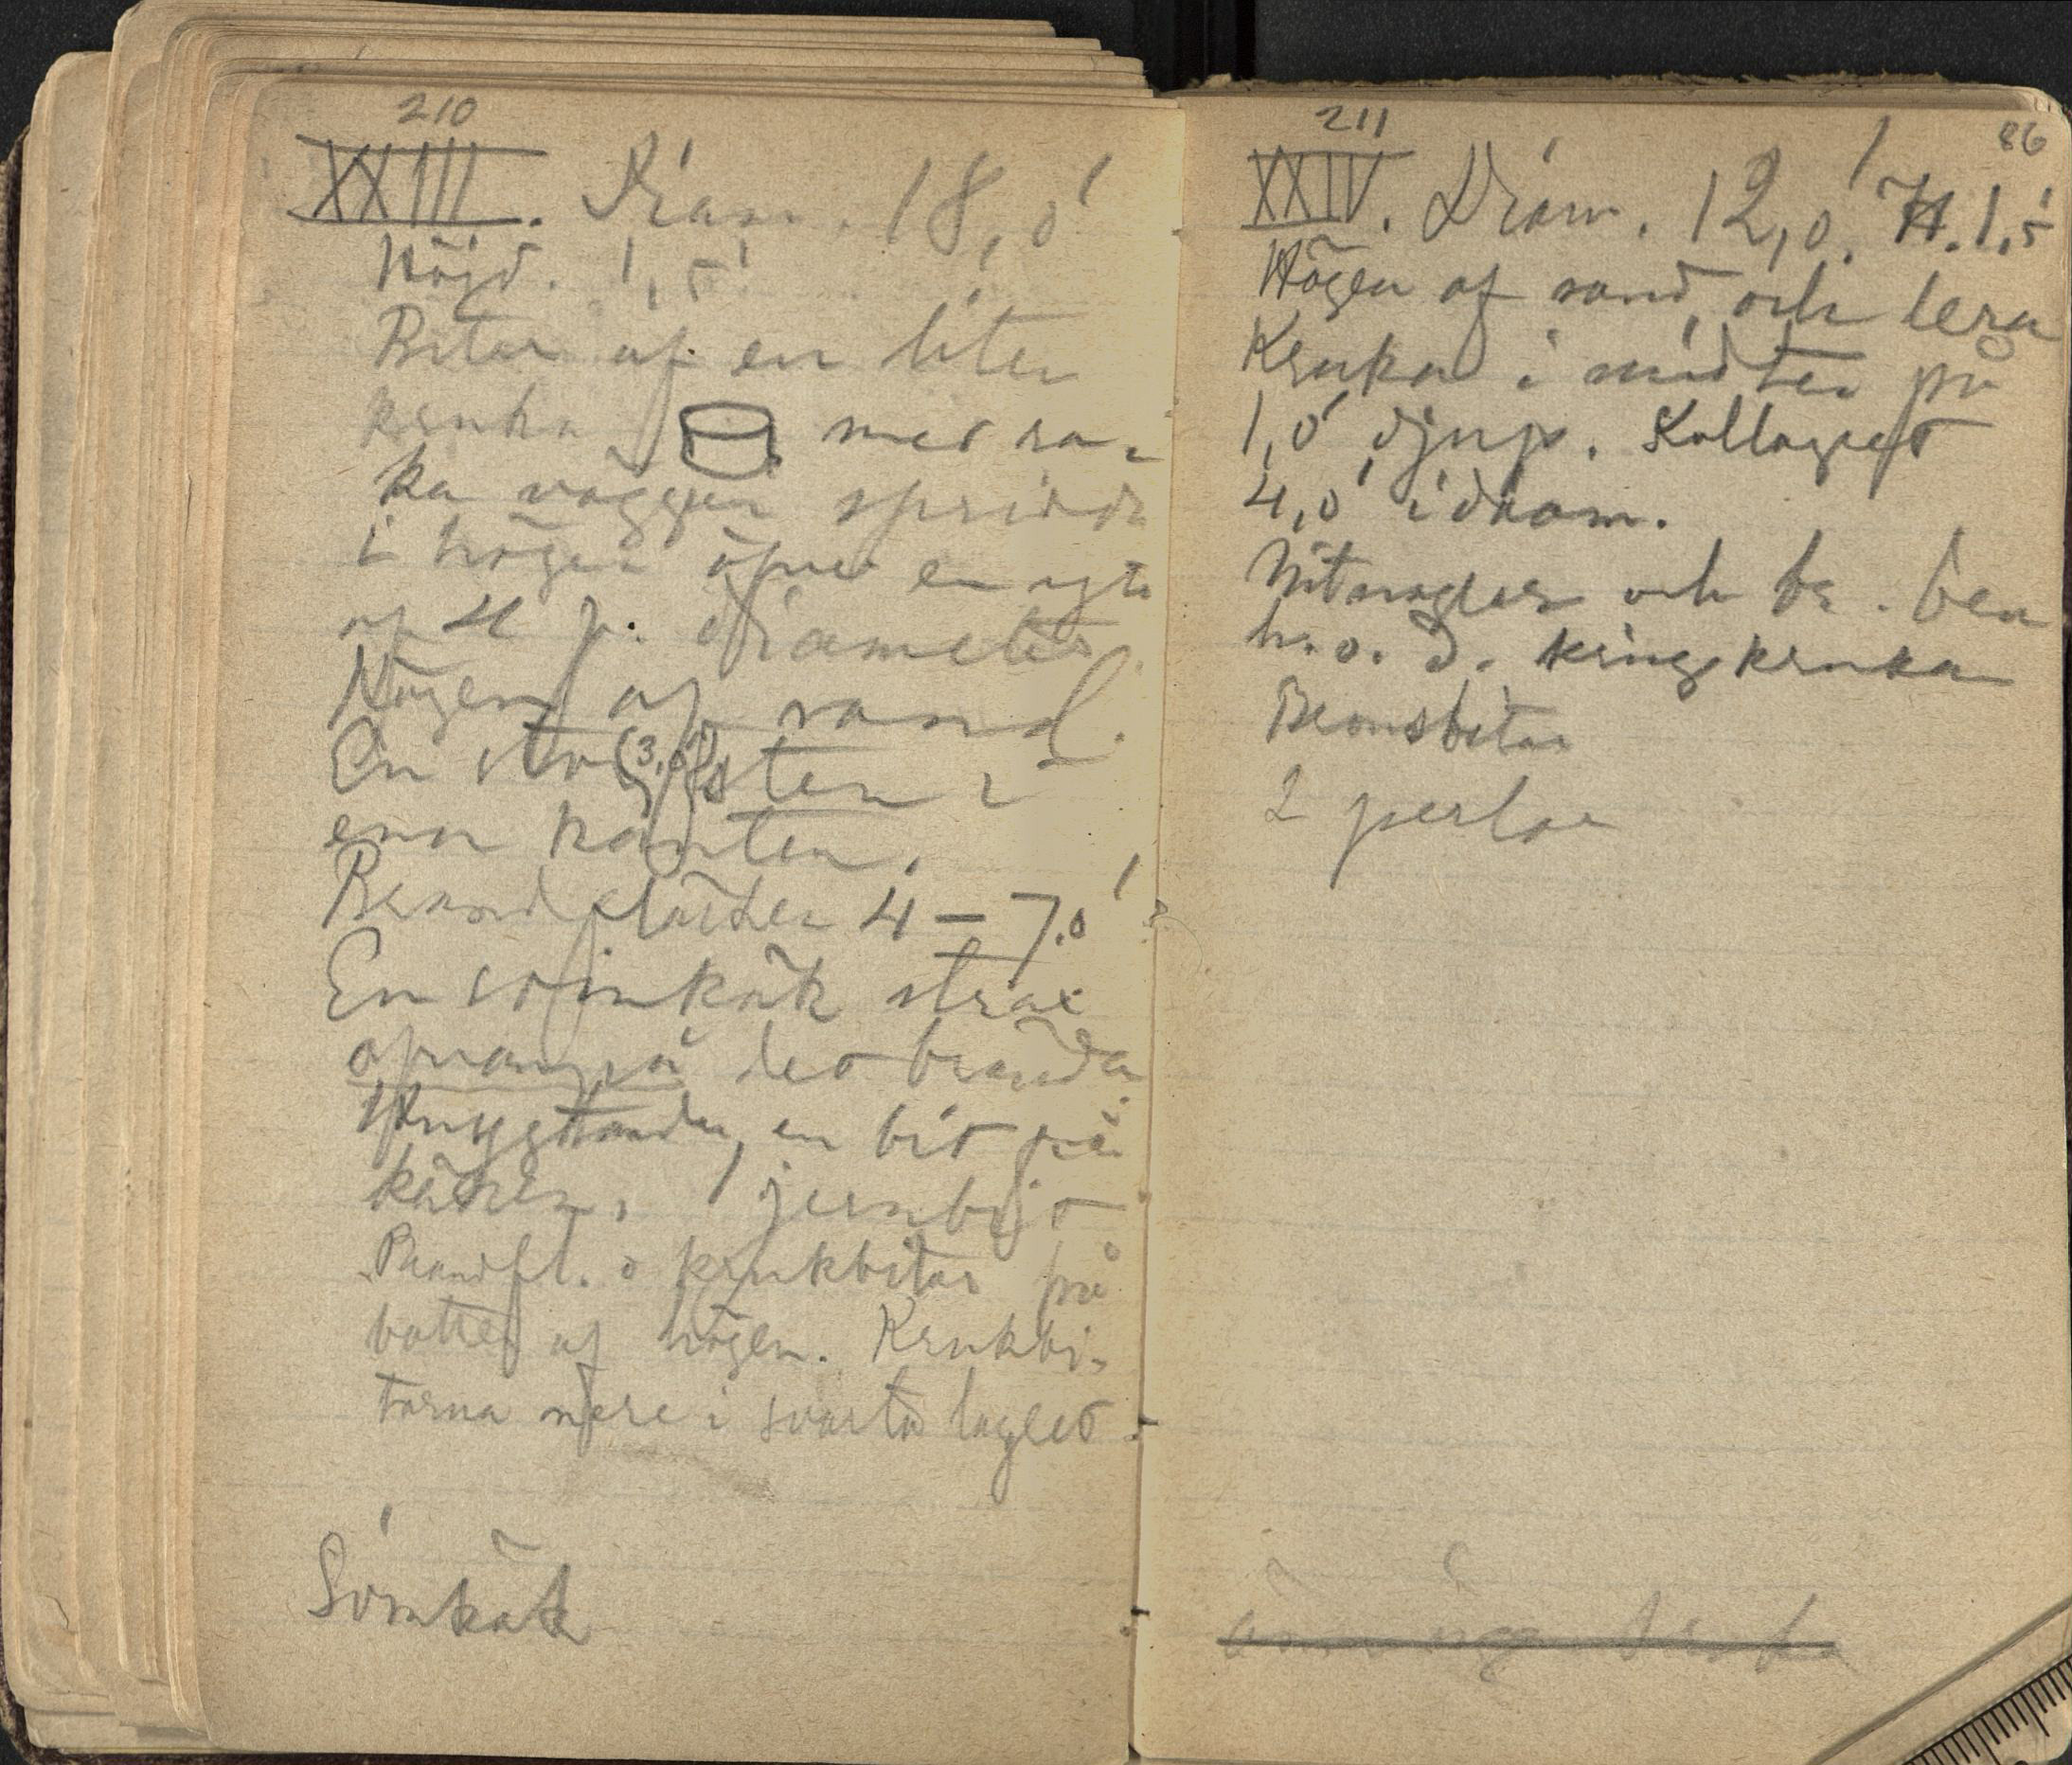 210
XXIII. Diam. 18,0'
Höjd. 1,5'
Bitar af en liten
kruka med ra-
ka väggar spridda
i högen öfver en yta
af 4 f. diameter
Högen af sand.
En stor (3,0') sten i
ena kanten.
Brandfläcken 4 – 7.0'
En svinkäk strax
ofvanpå det brända
Hnggtander, en bit på
käken. 1 jernbit
Brandfl. o krukbitar på
botten af högen. Krukbi-
tarna nere i svarta lagret.
Svinkäk
211
86
XXIV. Diam. 12,0'. H. 1,5'
Högen af sand och lera
Kruka i midten på
1,0' djup. Kollagret
4,0' i diam.
Nitnaglar och br. ben
h. o. d. kring kruka
Bronsbitar
2 perlor